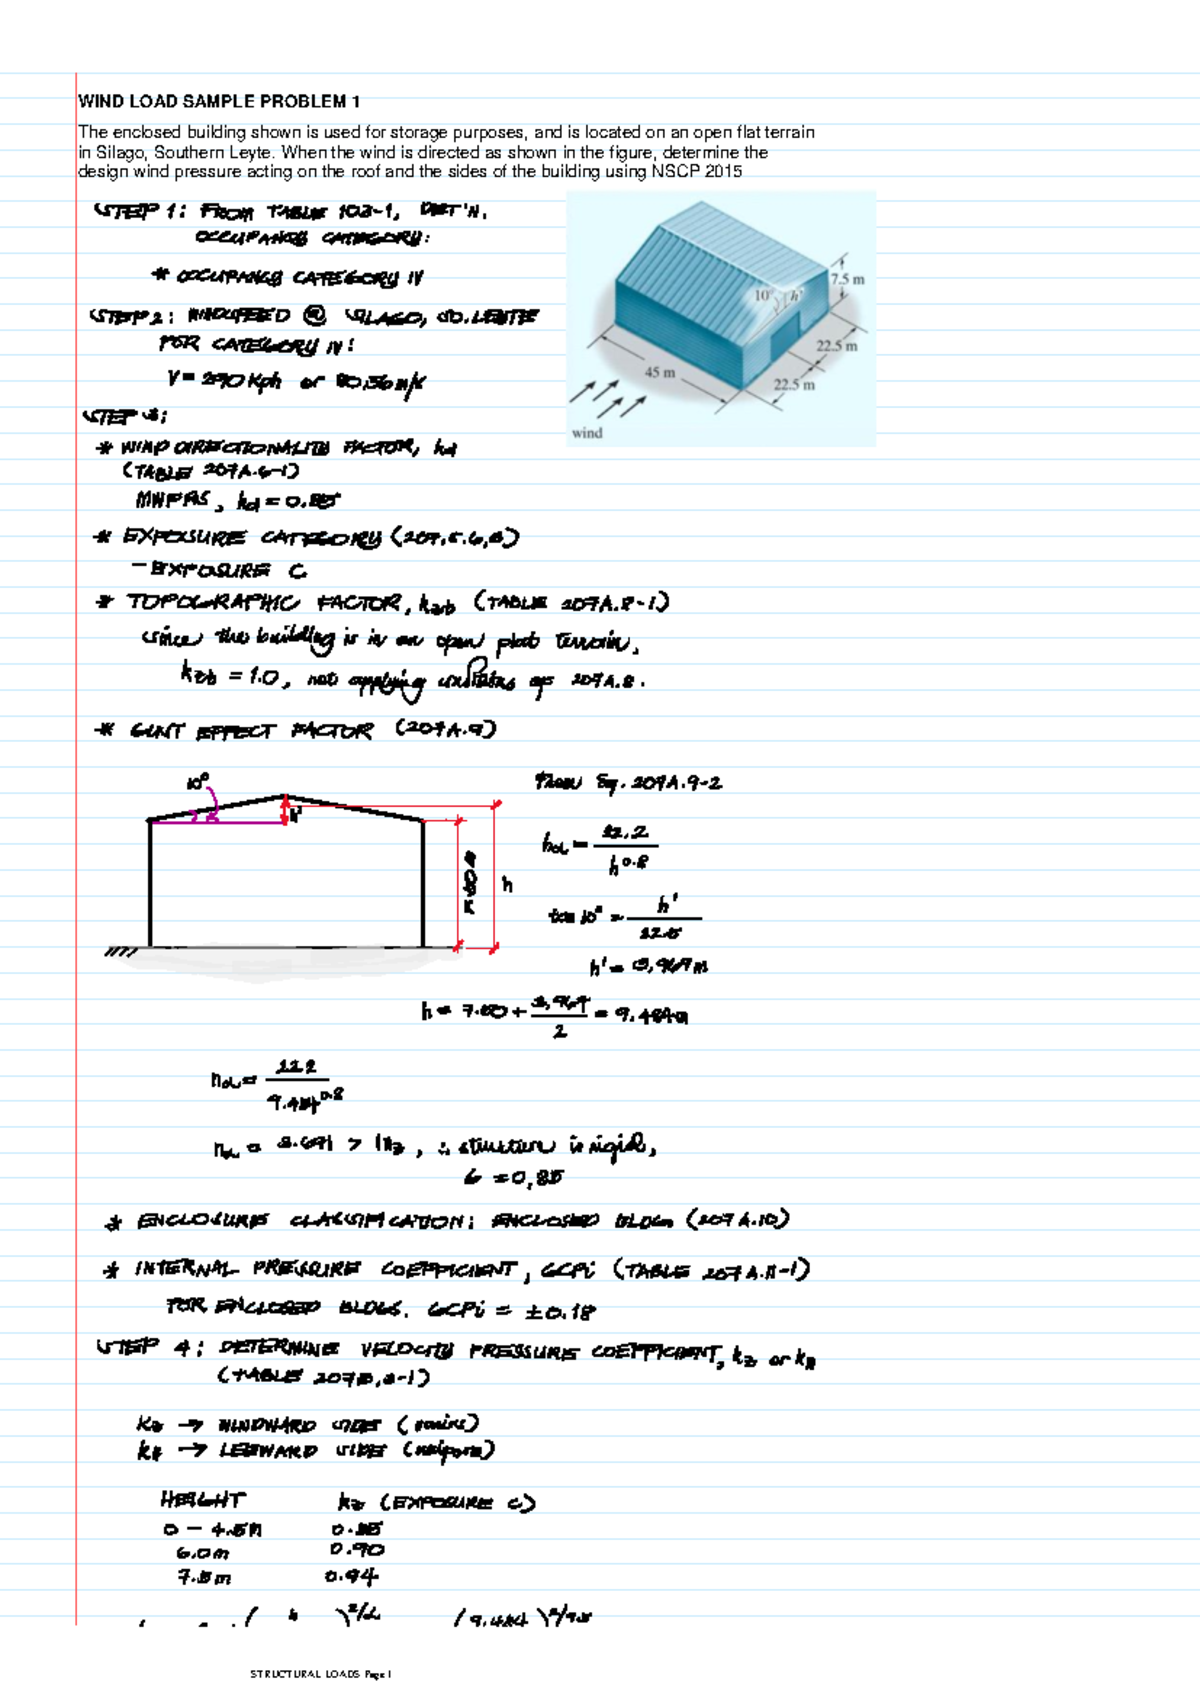 WIND LOAD SAMPLE PROBLEM 1
The enclosed building shown is used for storage purposes, and is located on an open flat terrain
in Silago, Southern Leyte. When the wind is directed as shown in the figure, determine the
design wind pressure acting on the roof and the sides of the building using NSCP 2015
STEP 1: FROM TABLE 103-1, DET'N.
OCCUPANCY CATEGORY:
* OCCUPANCY CATEGORY IV
STEP 2: WINDSPEED @ SILAGO, SO. LEYTE
FOR CATEGORY IV:
V = 290 kph or 80.56 m/s
7.5 m
10° h'
22.5 m
45 m
22.5 m
wind
STEP 3:
* WIND DIRECTIONALITY FACTOR, kd
(TABLE 207A.6-1)
MWFRS, kd = 0.85
* EXPOSURE CATEGORY
- EXPOSURE C
* TOPOGRAPHIC FACTOR, kzt (TABLE 207A.8-1)
since the building is in an open flat terrain,
kzt = 1.0, not applying 207A.8.
* GUST EFFECT FACTOR (207A.9)
10°
h'
7.50m
h
From Eq. 207A.9-2
na = 22.2 / h^0.8
tan 10° = h' / 22.5
h' = 3.967m
h = 7.50 + 3.967 / 2 = 9.484m
na = 22.2 / 9.484^0.8
na = 3.671 > 1Hz, ∴ structure is rigid,
G = 0.85
* ENCLOSURE CLASSIFICATION: ENCLOSED BLDG (207A.10)
* INTERNAL PRESSURE COEFFICIENT, GCPi (TABLE 207A.11-1)
FOR ENCLOSED BLDGS. GCPi = ±0.18
STEP 4: DETERMINE VELOCITY PRESSURE COEFFICIENT, kz or kh
(TABLE 207B.3-1)
kz → WINDWARD SIDE (varies)
kh → LEEWARD SIDE (uniform)
HEIGHT kz (EXPOSURE C)
0 - 4.5m 0.85
6.0m 0.90
7.5m 0.94
STRUCTURAL LOADS Page 1